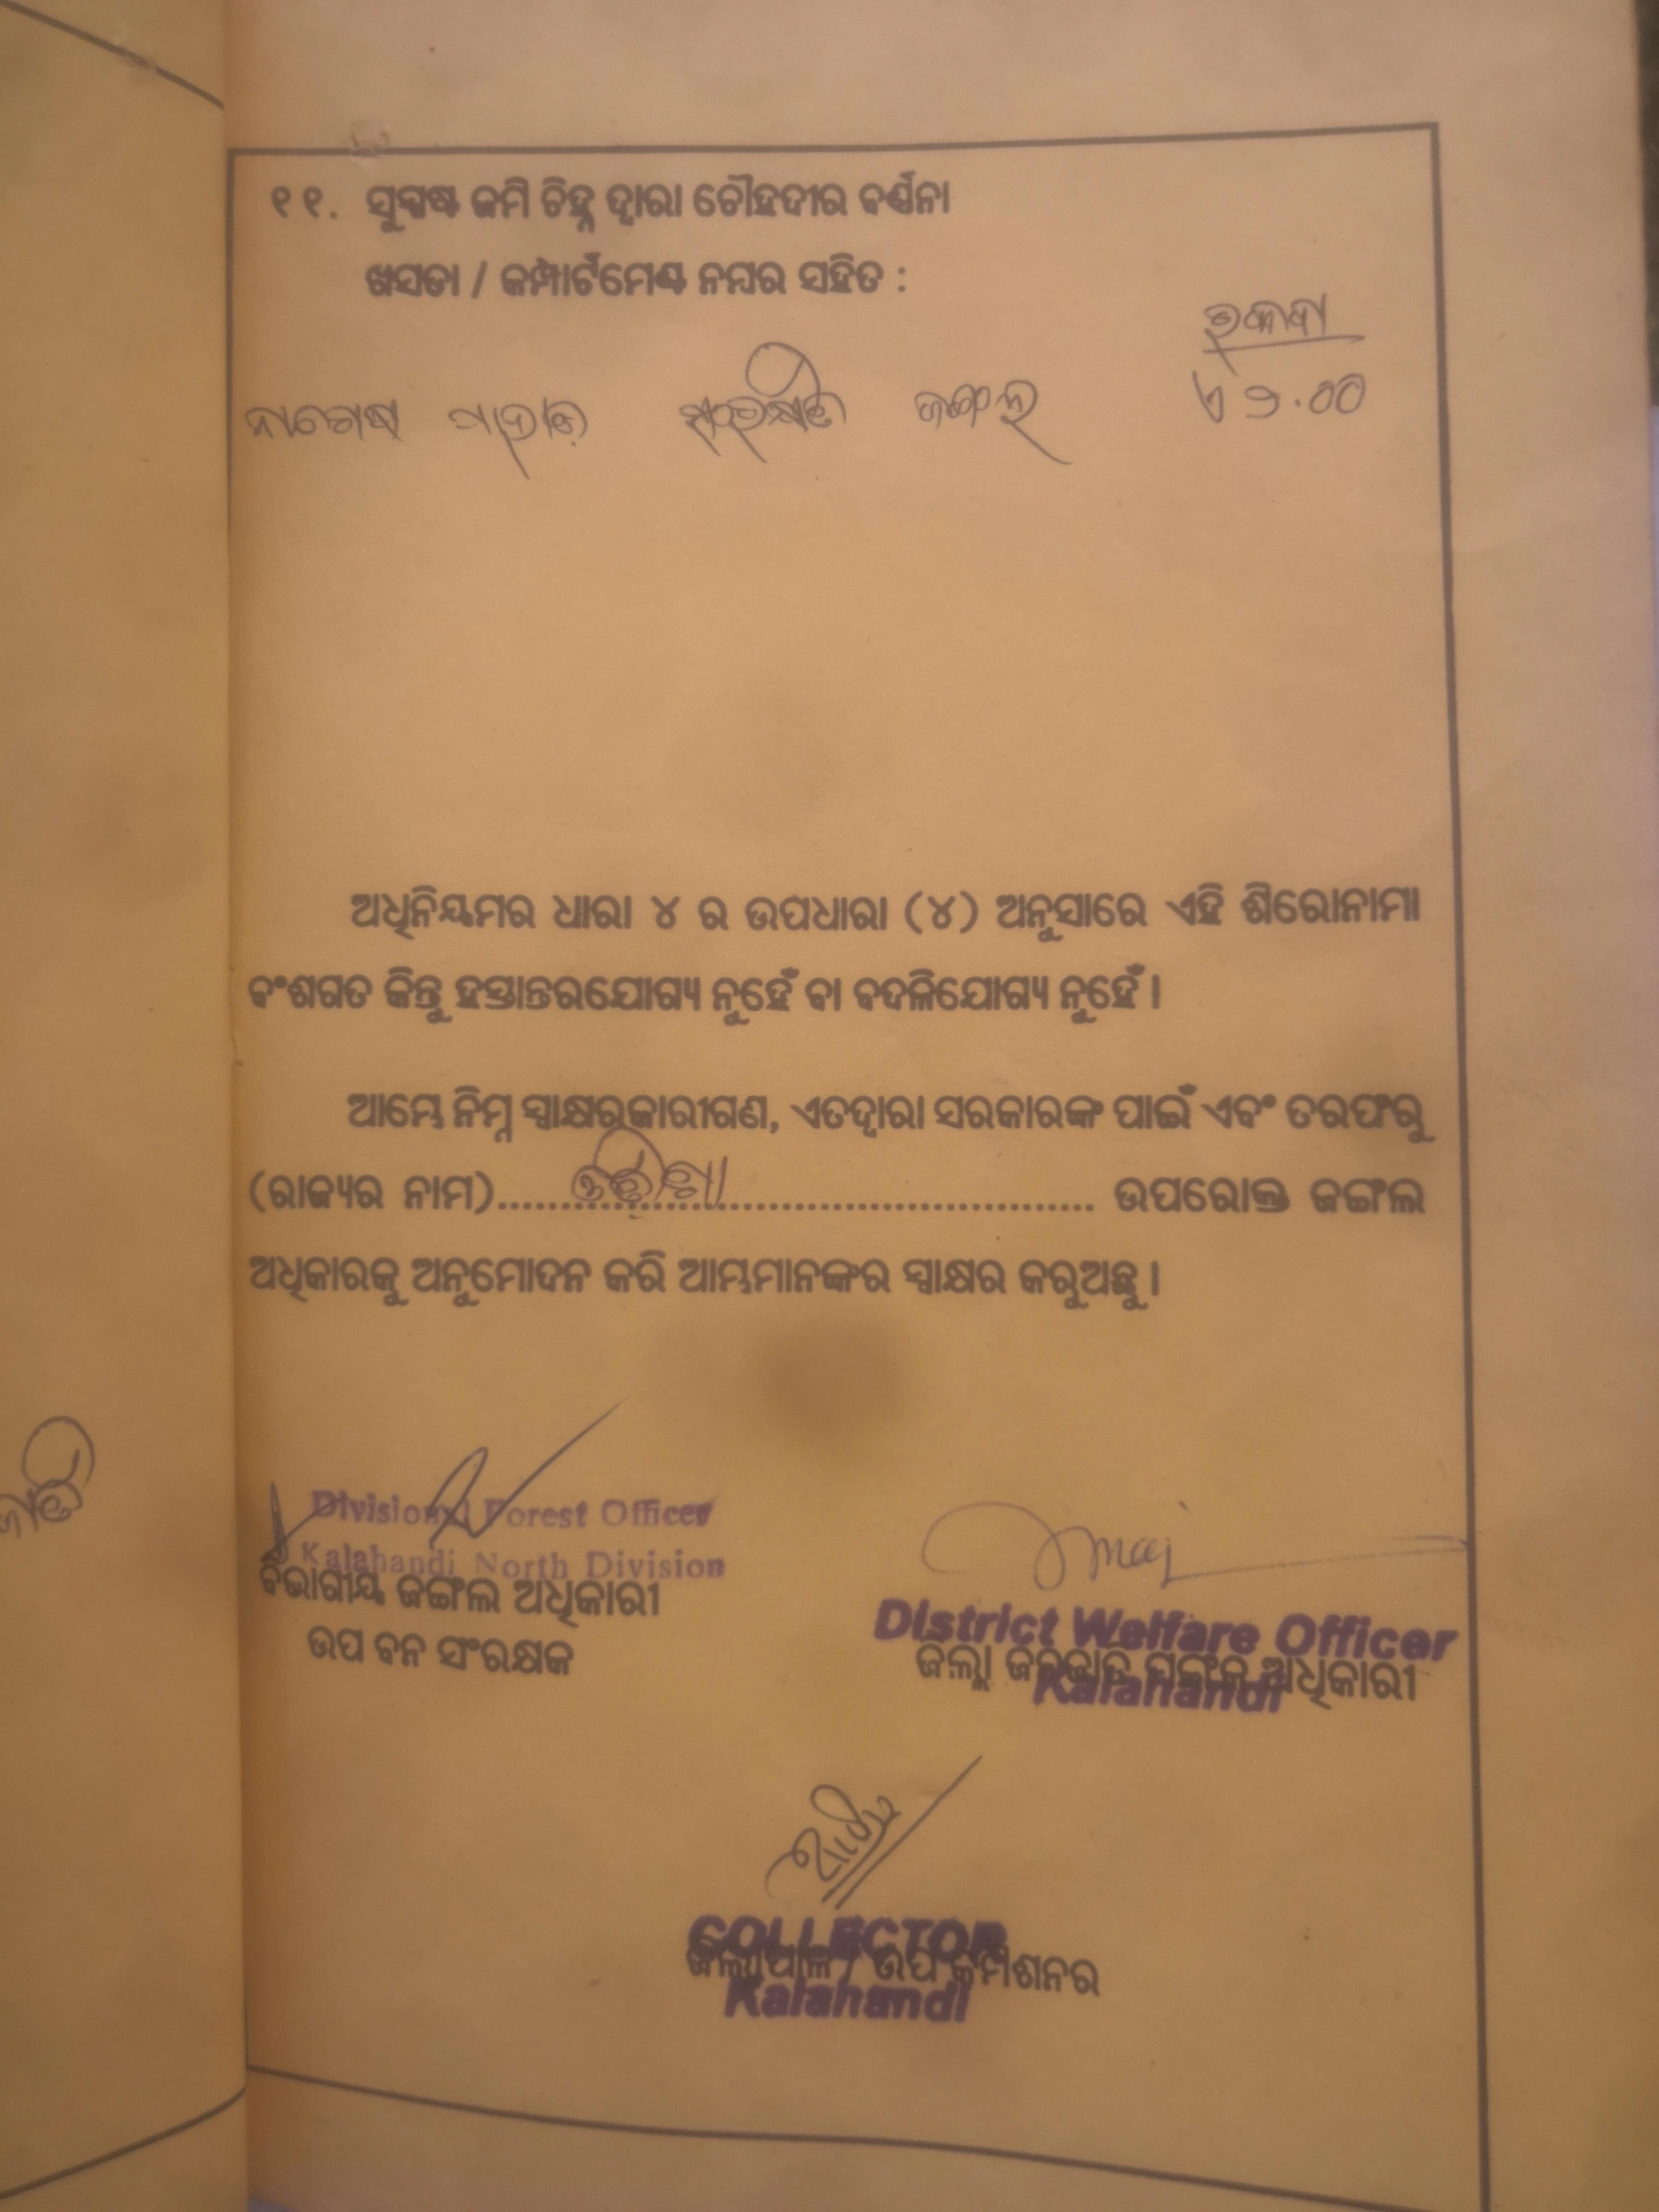 ୧୧. ସୁସ୍ପଷ୍ଟ ଜମି ଚିହ୍ନ ଦ୍ୱାରା ଚୌହଦୀର ବର୍ଣ୍ଣନା
ଖସଡା / କମ୍ପାର୍ଟମେଣ୍ଟ ନମ୍ବର ସହିତ :
ରକବା
ପାହାଡ ସଂରକ୍ଷିତ ଜଙ୍ଗଲ ଏ ୨.୦୦
ଅଧିନିୟମର ଧାରା ୪ ର ଉପଧାରା (୪) ଅନୁସାରେ ଏହି ଶିରୋନାମା
ବଂଶଗତ କିନ୍ତୁ ହସ୍ତାନ୍ତରଯୋଗ୍ୟ ନୁହେଁ ବା ବଦଳିଯୋଗ୍ୟ ନୁହେଁ ।
ଆମ୍ଭେ ନିମ୍ନ ସ୍ୱାକ୍ଷରକାରୀଗଣ, ଏତଦ୍ୱାରା ସରକାରଙ୍କ ପାଇଁ ଏବଂ ତରଫରୁ
(ରାଜ୍ୟର ନାମ).....ଓଡ଼ିଶା.................................... ଉପରୋକ୍ତ ଜଙ୍ଗଲ
ଅଧିକାରକୁ ଅନୁମୋଦନ କରି ଆମ୍ଭମାନଙ୍କର ସ୍ୱାକ୍ଷର କରୁଅଛୁ ।
Divisional Forest Officer
Kalahandi North Division
ବିଭାଗୀୟ ଜଙ୍ଗଲ ଅଧିକାରୀ
ଉପ ବନ ସଂରକ୍ଷକ
District Welfare Officer
ଜିଲ୍ଲା ଜନଜାତି ମଙ୍ଗଳ ଅଧିକାରୀ
Kalahandi
COLLECTOR
ଜିଲ୍ଲାପାଳ / ଉପ କମିଶନର
Kalahandi